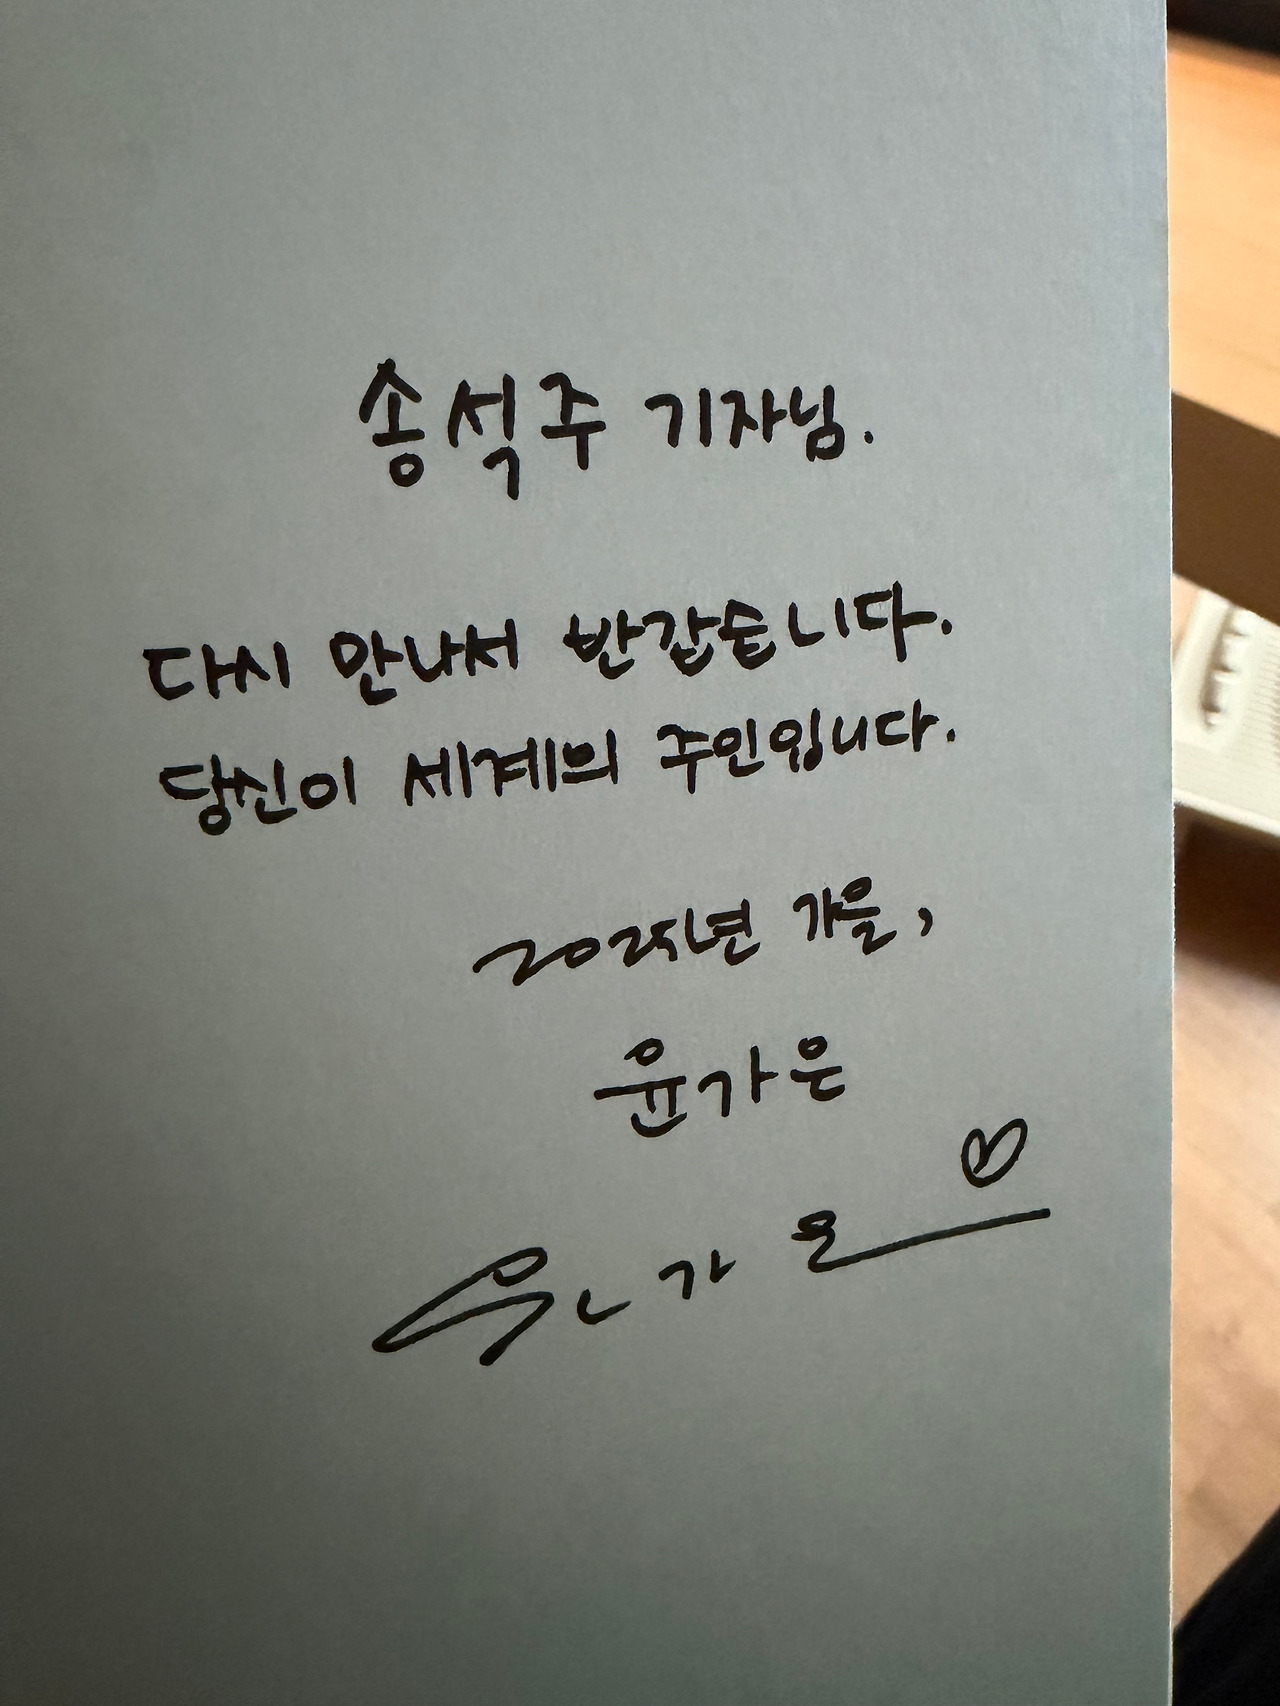 송석주 기자님.
다시 만나서 반갑습니다.
당신이 세계의 주인입니다.
2025년 가을,
윤가은
윤가은